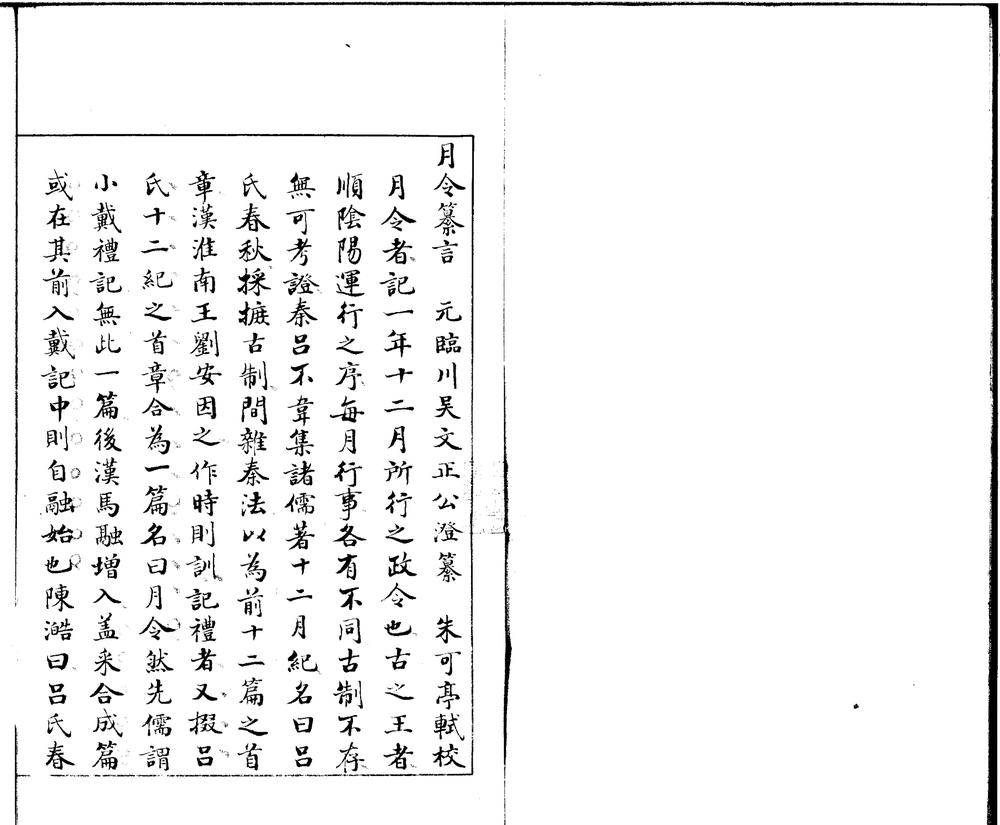 月令纂言　元臨川吴文正公澄纂　朱可亭軾校
月令者記一年十二月所行之政令也古之王者
順陰陽運行之序每月行事各有不同古制不存
無可考證秦呂不韋集諸儒著十二月紀名曰呂
氏春秋採摭古制間雜秦法以為前十二篇之首
章漢淮南王劉安因之作時則訓記禮者又掇呂
氏十二紀之首章合為一篇名曰月令然先儒謂
小戴禮記無此一篇後漢馬融增入盖釆合成篇
或在其前入戴記中則自融始也陳澔曰呂氏春